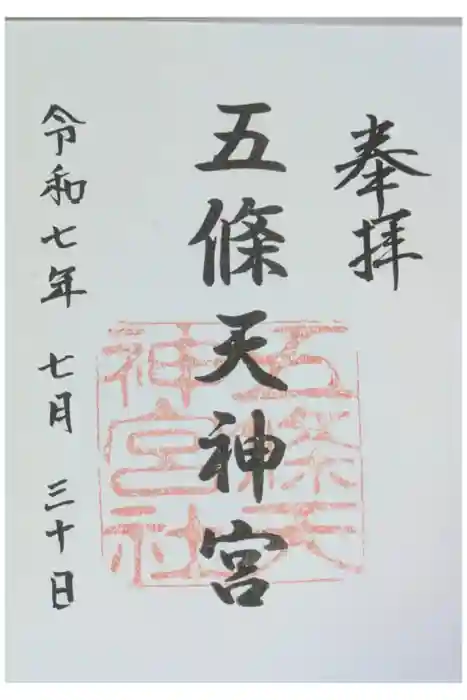 奉拝
五條天神宮
五條天
神宮社
令和七年 七月 三十日